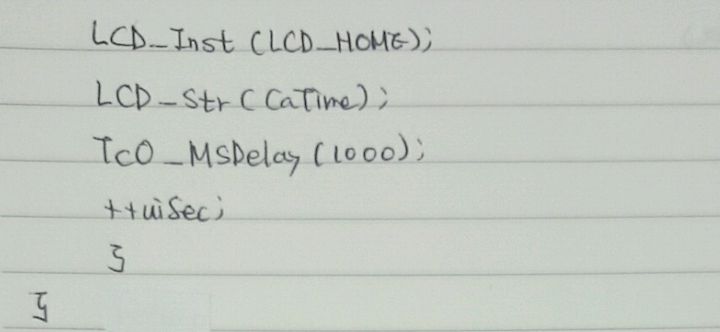 LCD_Inst (LCD_HOME);
LCD_Str (CaTime);
TC0_MSDelay (1000);
++uiSec;
}
}